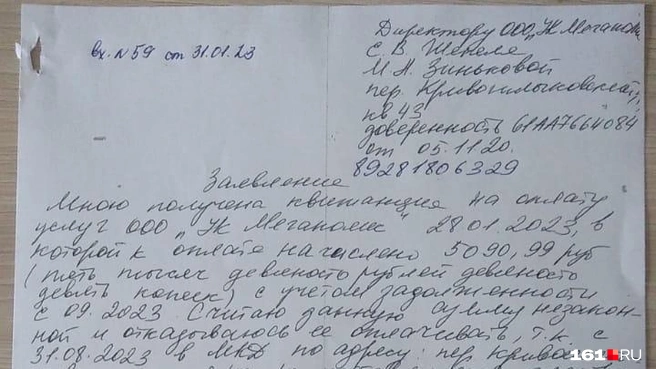 вх. N 59 от 31.01.23
Директору ООО „УК Мегаполис
С. В. Шепеле
М. А. Зиньковой
пер. Кривошлыковский,
кв 43
доверенность 61АА7664084
от 05.11.20.
89281806329
Заявление
Мною получена квитанция на оплату
услуг ООО „УК Мегаполис" 28.01.2023, в
которой к оплате начислено 5090,99 руб
(пять тысяч девяносто рублей девяносто
девять копеек) с учетом задолженности
с 09.2023. Считаю данную сумму незакон-
ной и отказываюсь ее оплачивать, т.к. с
31.08.2023 в МКД по адресу: пер. Кривош
161.RU